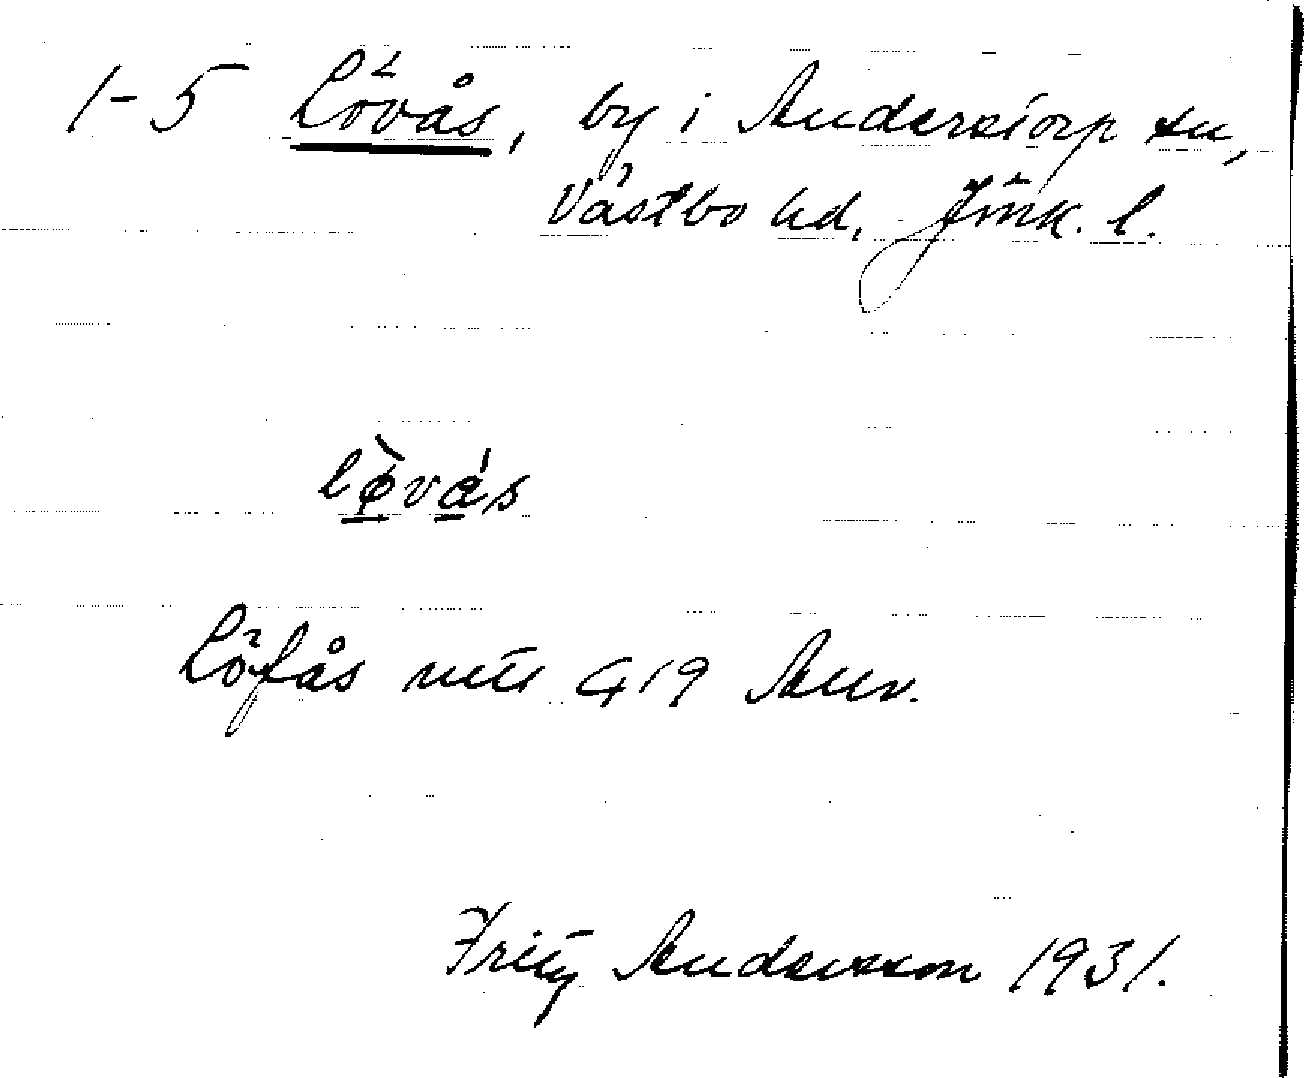 1-5 Lövås, by i Anderstorp sn,
Västbo hd, Jönk. l.
lø̀vás
Löfås mtl 419 Anv.
Fritz Andersson 1931.